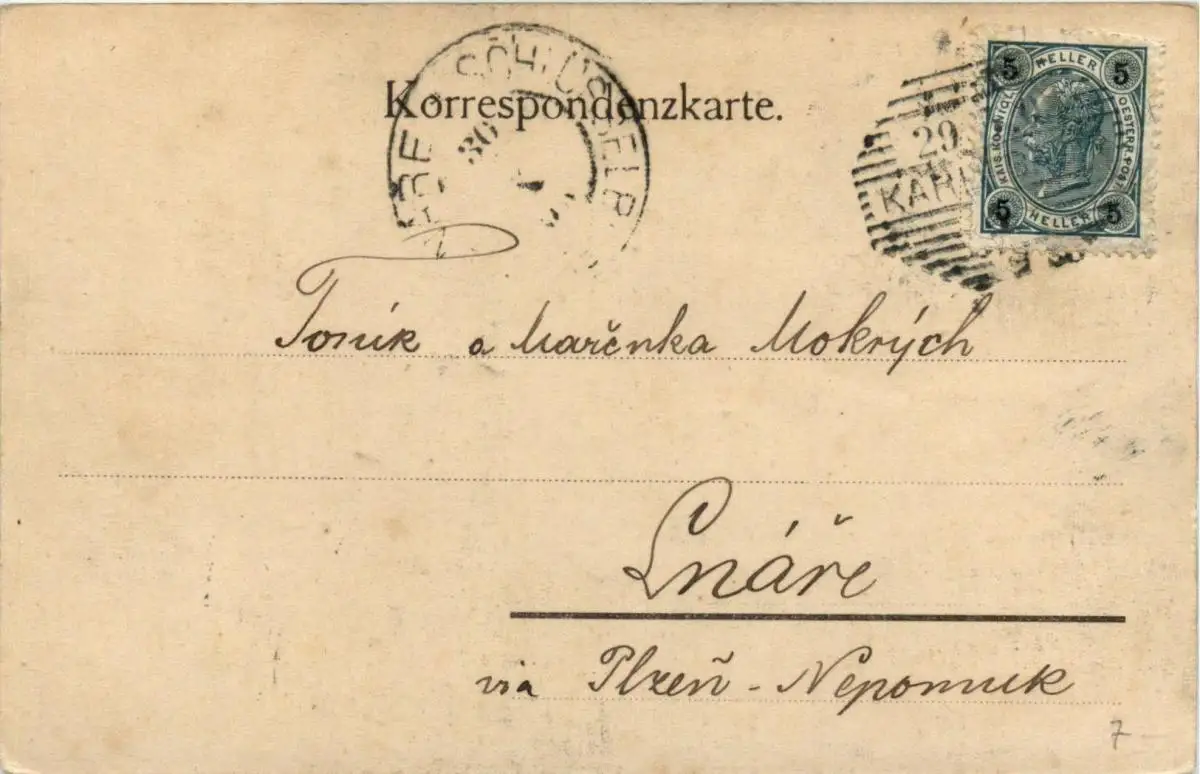 Korrespondenzkarte.
SCHLÜSSELB
30
29
KARL
5 HELLER 5
KAIS. KOENIGL. OESTERR. POST
5 HELLER 5
Toník a Mařenka Mokrých
Lnáře
via Plzeň - Nepomuk
7